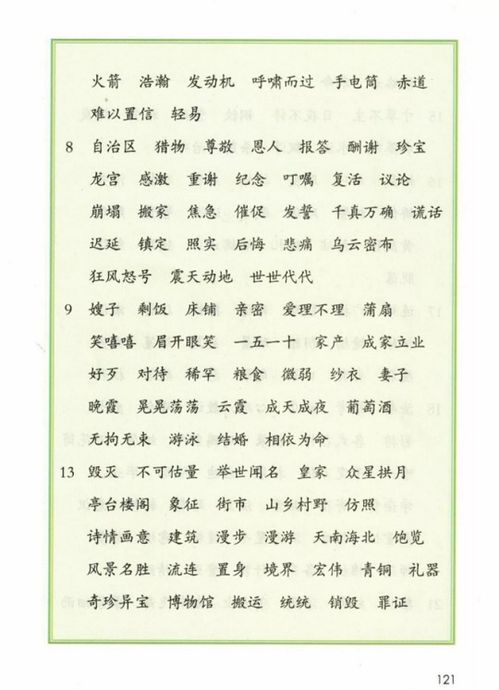 火箭 浩瀚 发动机 呼啸而过 手电筒 赤道
难以置信 轻易
8 自治区 猎物 尊敬 恩人 报答 酬谢 珍宝
龙宫 感激 重谢 纪念 叮嘱 复活 议论
崩塌 搬家 焦急 催促 发誓 千真万确 谎话
迟延 镇定 照实 后悔 悲痛 乌云密布
狂风怒号 震天动地 世世代代
9 嫂子 剩饭 床铺 亲密 爱理不理 蒲扇
笑嘻嘻 眉开眼笑 一五一十 家产 成家立业
好歹 对待 稀罕 粮食 微弱 纱衣 妻子
晚霞 晃晃荡荡 云霞 成天成夜 葡萄酒
无拘无束 游泳 结婚 相依为命
13 毁灭 不可估量 举世闻名 皇家 众星拱月
亭台楼阁 象征 街市 山乡村野 仿照
诗情画意 建筑 漫步 漫游 天南海北 饱览
风景名胜 流连 置身 境界 宏伟 青铜 礼器
奇珍异宝 博物馆 搬运 统统 销毁 罪证
121